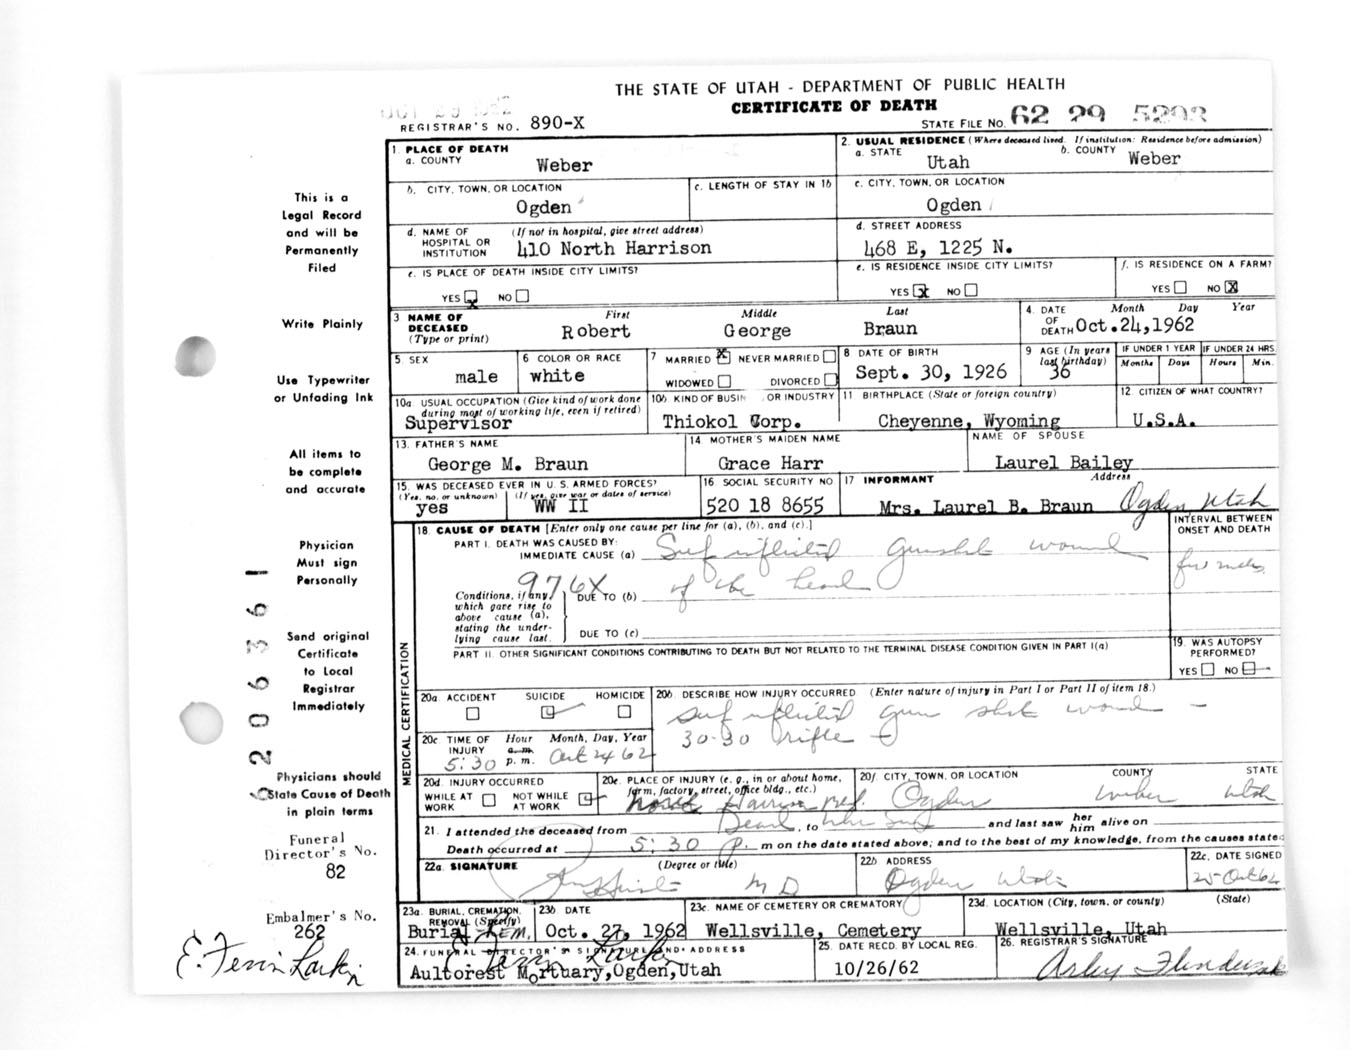 THE STATE OF UTAH - DEPARTMENT OF PUBLIC HEALTH
CERTIFICATE OF DEATH
REGISTRAR'S NO. 890-X
STATE FILE NO. 62 29 5203
1. PLACE OF DEATH
a. COUNTY Weber
2. USUAL RESIDENCE (Where deceased lived. If institution: Residence before admission)
a. STATE Utah b. COUNTY Weber
b. CITY, TOWN, OR LOCATION Ogden
c. LENGTH OF STAY IN 1b
c. CITY, TOWN, OR LOCATION Ogden
d. NAME OF HOSPITAL OR INSTITUTION (If not in hospital, give street address) 410 North Harrison
d. STREET ADDRESS 468 E, 1225 N.
e. IS PLACE OF DEATH INSIDE CITY LIMITS?
YES x NO
e. IS RESIDENCE INSIDE CITY LIMITS?
YES x NO
f. IS RESIDENCE ON A FARM?
YES NO X
3 NAME OF DECEASED (Type or print)
First Middle Last
Robert George Braun
4. DATE OF DEATH Month Day Year
Oct.24,1962
5. SEX male
6 COLOR OR RACE white
7 MARRIED x NEVER MARRIED
WIDOWED DIVORCED
8 DATE OF BIRTH Sept. 30, 1926
9 AGE (In years last birthday) 36
IF UNDER 1 YEAR Months Days
IF UNDER 24 HRS. Hours Min.
10a. USUAL OCCUPATION (Give kind of work done during most of working life, even if retired) Supervisor
10b. KIND OF BUSIN OR INDUSTRY Thiokol Corp.
11 BIRTHPLACE (State or foreign country) Cheyenne, Wyoming
12. CITIZEN OF WHAT COUNTRY? U.S.A.
13. FATHER'S NAME George M. Braun
14 MOTHER'S MAIDEN NAME Grace Harr
NAME OF SPOUSE Laurel Bailey
15. WAS DECEASED EVER IN U. S. ARMED FORCES?
(Yes, no, or unknown) yes (If yes, give war or dates of service) WW II
16 SOCIAL SECURITY NO. 520 18 8655
17 INFORMANT Address
Mrs. Laurel B. Braun Ogden, Utah
18. CAUSE OF DEATH [Enter only one cause per line for (a), (b), and (c).]
INTERVAL BETWEEN ONSET AND DEATH
PART I. DEATH WAS CAUSED BY:
IMMEDIATE CAUSE (a) Self inflicted gunshot wound
of the head
few
976X
Conditions, if any, which gave rise to above cause (a), stating the underlying cause last.
DUE TO (b)
DUE TO (c)
PART II. OTHER SIGNIFICANT CONDITIONS CONTRIBUTING TO DEATH BUT NOT RELATED TO THE TERMINAL DISEASE CONDITION GIVEN IN PART I(a)
19. WAS AUTOPSY PERFORMED?
YES NO
MEDICAL CERTIFICATION
20a. ACCIDENT SUICIDE HOMICIDE
20b. DESCRIBE HOW INJURY OCCURRED. (Enter nature of injury in Part I or Part II of item 18.)
self inflicted gun shot wound -
30-30 rifle
20c. TIME OF INJURY Hour Month, Day, Year
a.m.
5:30 p.m. Oct 24 62
20d. INJURY OCCURRED
WHILE AT WORK NOT WHILE AT WORK
20e. PLACE OF INJURY (e. g., in or about home, farm, factory, street, office bldg., etc.)
North Harrison
20f. CITY, TOWN, OR LOCATION COUNTY STATE
Ogden Weber Utah
21. I attended the deceased from Dead, to when and last saw her him alive on
Death occurred at 5:30 P. m on the date stated above; and to the best of my knowledge, from the causes state
22a. SIGNATURE (Degree or title)
M D
22b ADDRESS Ogden Utah
22c. DATE SIGNED 25 Oct 62
23a. BURIAL, CREMATION, REMOVAL (Specify) Burial REM.
23b DATE Oct. 27, 1962
23c. NAME OF CEMETERY OR CREMATORY Wellsville, Cemetery
23d. LOCATION (City, town, or county) (State)
Wellsville, Utah
24. FUNERAL DIRECTOR'S SIGNATURE AND ADDRESS
E. Ferrin Larkin
Aultorest Mortuary,Ogden,Utah
25. DATE RECD. BY LOCAL REG. 10/26/62
26. REGISTRAR'S SIGNATURE
This is a
Legal Record
and will be
Permanently
Filed
Write Plainly
Use Typewriter
or Unfading Ink
All items to
be complete
and accurate
Physician
Must sign
Personally
Send original
Certificate
to Local
Registrar
Immediately
Physicians should
State Cause of Death
in plain terms
Funeral
Director's No.
82
Embalmer's No.
262
E. Ferrin Larkin